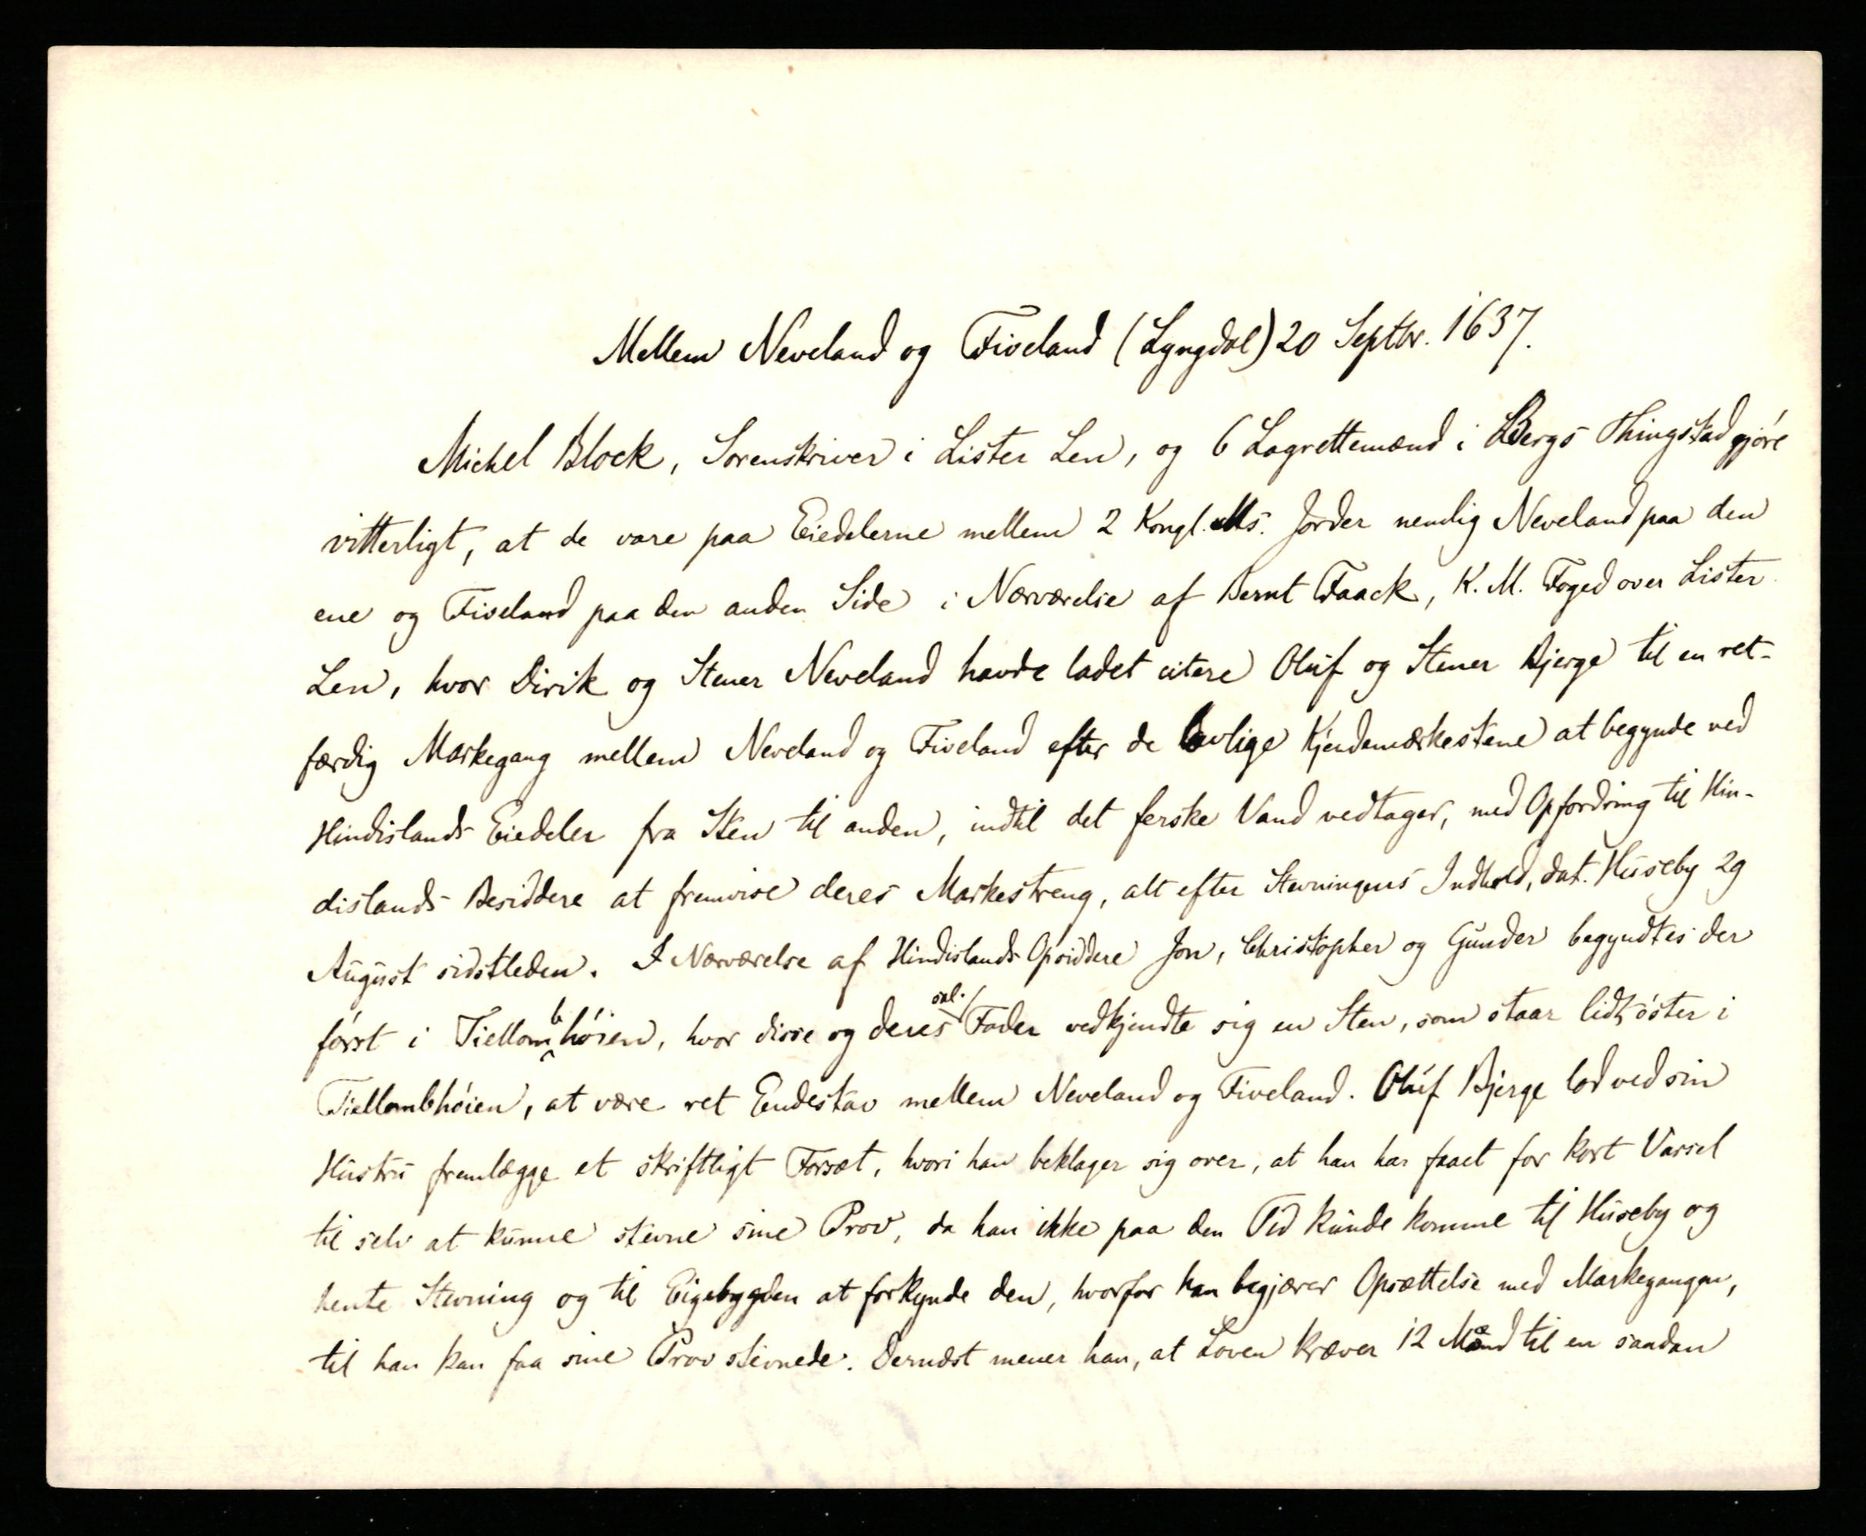 Mellem Neveland og Fiveland (Lyngdal) 20 Septbr. 1637.
Michel Block, Sorenskriver i Lister Len, og 6 Lagrettemænd i Bergs Thingstad gjöre
vitterligt, at de vare paa Eiedelerne mellem 2 Kongl. Ms. Jorder nemlig Neveland paa den
ene og Fiveland paa den anden Side i Nærværelse af Bernt Faack, K. M. Foged over Lister
Len, hvor Dirik og Stener Neveland havde ladet citere Oluf og Stener Bjerge til en ret-
færdig Markegang mellem Neveland og Fiveland efter de lovlige Kjendemærkestene at begynde ved
Hindislands Eiedeler fra Sten til anden, indtil det ferske Vand vedtager, med Opfordring til Hin-
dislands Besiddere at fremvise deres Markestreng, alt efter Stevningens Indhold, dat. Huseby 29
August sidstleden. I Nærværelse af Hindislands Opsiddere Jon, Christopher og Gunder begyndtes der
först i Tiellombhöien, hvor disse og deres sal. Fader vedkjendte sig en Sten, som staar lidt öster i
Tiellombhöien, at være ret Endestav mellem Neveland og Fiveland. Oluf Bjerge lod ved sin
Hustru fremlægge et skriftligt Forsæt, hvori han beklager sig over, at han har faaet for kort Varsel
til selv at kunne stevne sine Prov, da han ikke paa den Tid kunde komme til Huseby og
hente Stevning og til Eigebygden at forkynde den, hvorfor han begjærer Opsættelse med Markegangen,
til han kan faa sine Prov stevnede. Dernæst mener han, at Loven kræver 12 Mænd til en saadan